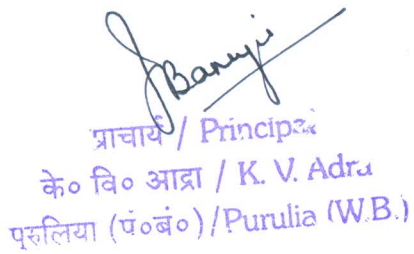 Banerji
प्राचार्य / Principal
के० वि० आद्रा / K. V. Adra
पुरुलिया (पं०बं०)/Purulia (W.B.)